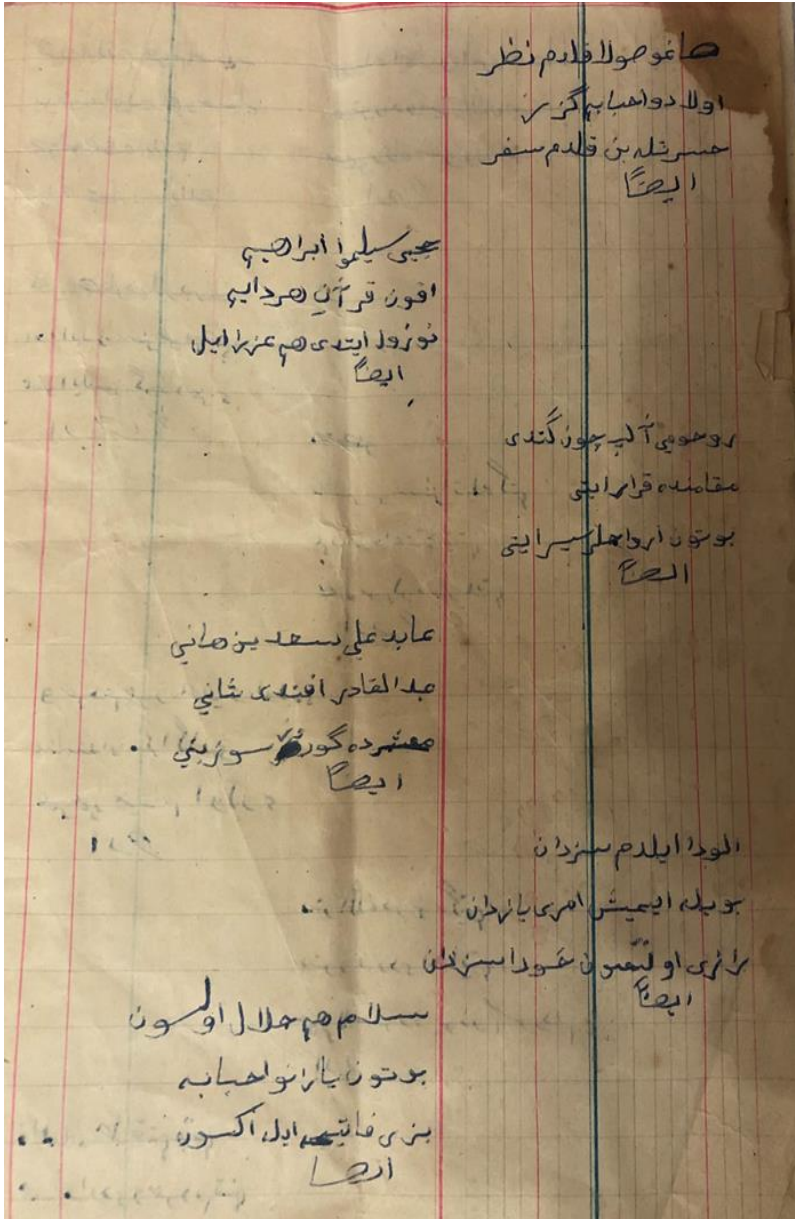 صاغو صولا قلدم نظر
اولاد و احبابه گزر
حسرتله بن قلدم سفر
ايضاً
يحيى سيلموا ابراهيم
اقون قرآن هر دايم
نوزول ايتدى هم عزرايل
ايضاً
روحومي آلب چون گتدى
مقامنده قرار ايتى
بوتون ارواحلر سير ايتى
ايضاً
عابد علي سعد بن هاني
عبدالقادر افندى ثاني
معشرده سوزيني
ايضاً
الودا ايلدم سزدان
بويله ايميش امرى يازدان
رازى اولسون خودا سزدان
ايضاً
سلام هم حلال اولسون
بوتون يارانو احبابه
بزى فاتيحه ايله اكسون